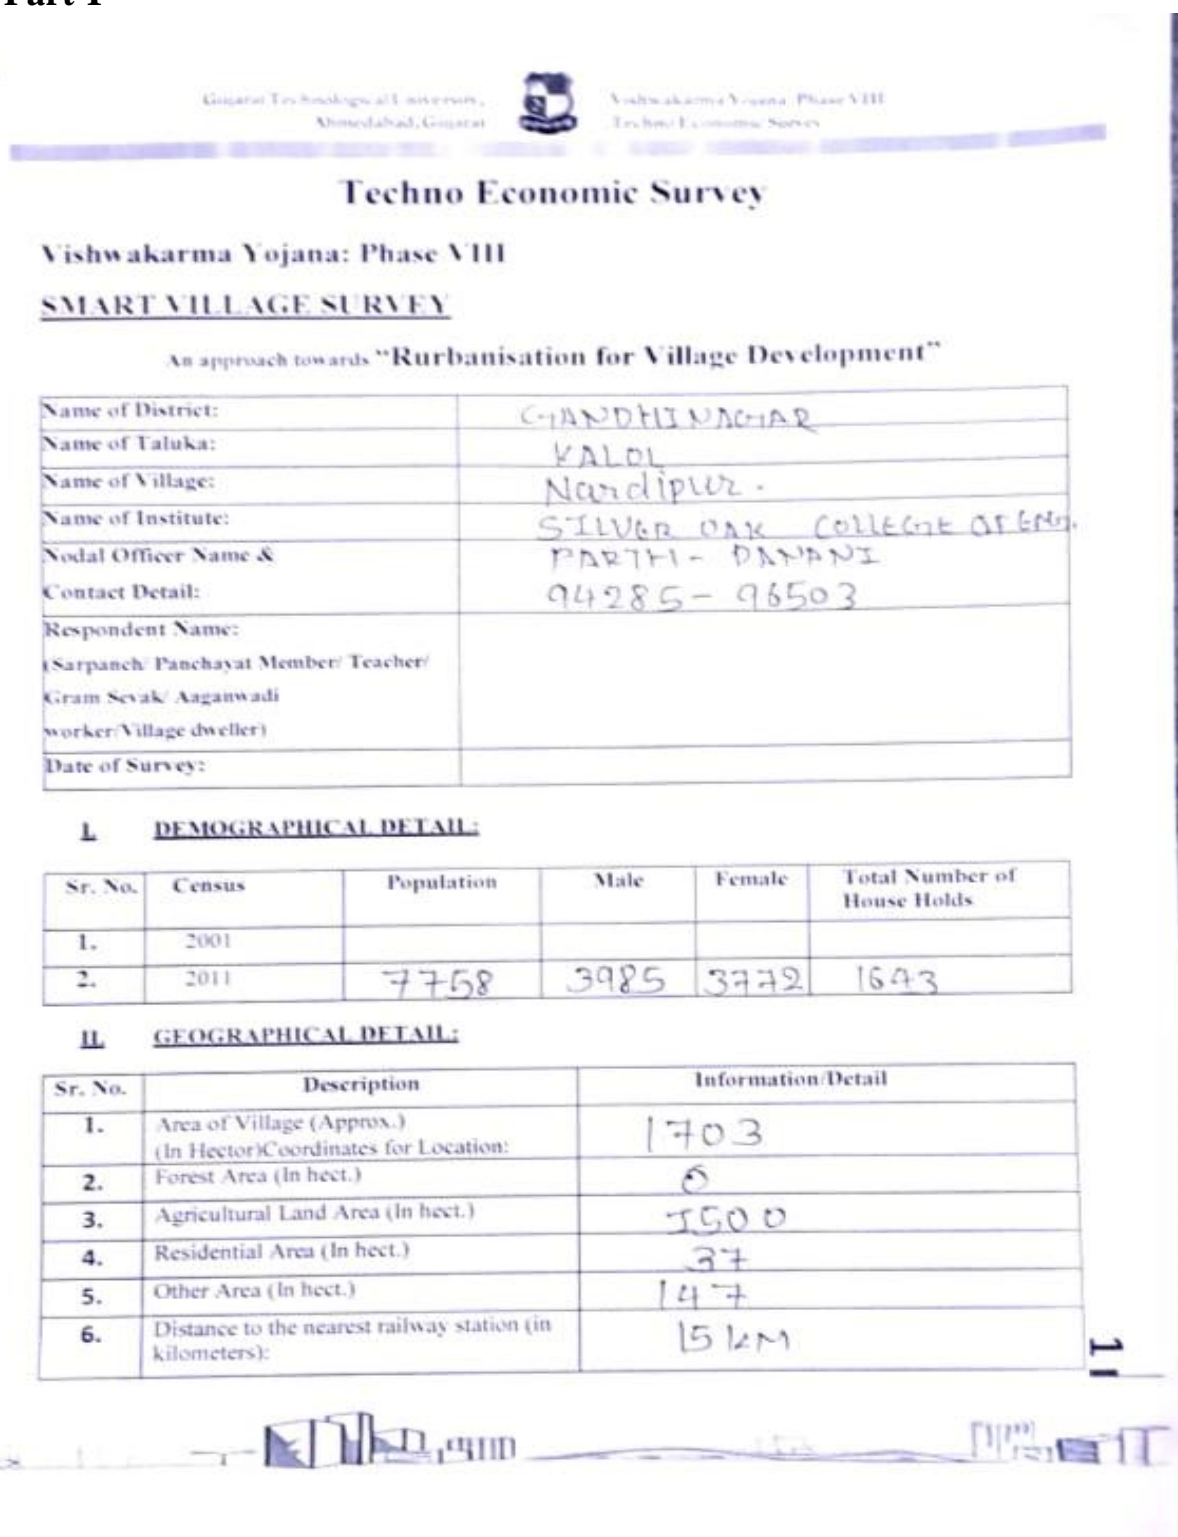 Part-1
Gujarat Technological University,
Ahmedabad, Gujarat
Vishwakarma Yojana: Phase VIII
Techno Economic Survey
Techno Economic Survey
Vishwakarma Yojana: Phase VIII
SMART VILLAGE SURVEY
An approach towards “Rurbanisation for Village Development”
Name of District: GANDHINAGAR
Name of Taluka: KALOL
Name of Village: Nardipur.
Name of Institute: SILVER OAK COLLEGE OF ENG.
Nodal Officer Name & PARTH - DANANI
Contact Detail: 94285-96503
Respondent Name:
(Sarpanch/ Panchayat Member/ Teacher/
Gram Sevak/ Aaganwadi
worker/Village dweller)
Date of Survey:
I. DEMOGRAPHICAL DETAIL:
Sr. No. Census Population Male Female Total Number of
House Holds
1. 2001
2. 2011 7758 3985 3772 1643
II. GEOGRAPHICAL DETAIL:
Sr. No. Description Information/Detail
1. Area of Village (Approx.) 1703
(In Hector)Coordinates for Location:
2. Forest Area (In hect.) 0
3. Agricultural Land Area (In hect.) 1500
4. Residential Area (In hect.) 37
5. Other Area (In hect.) 147
6. Distance to the nearest railway station (in 15 km
kilometers):
1